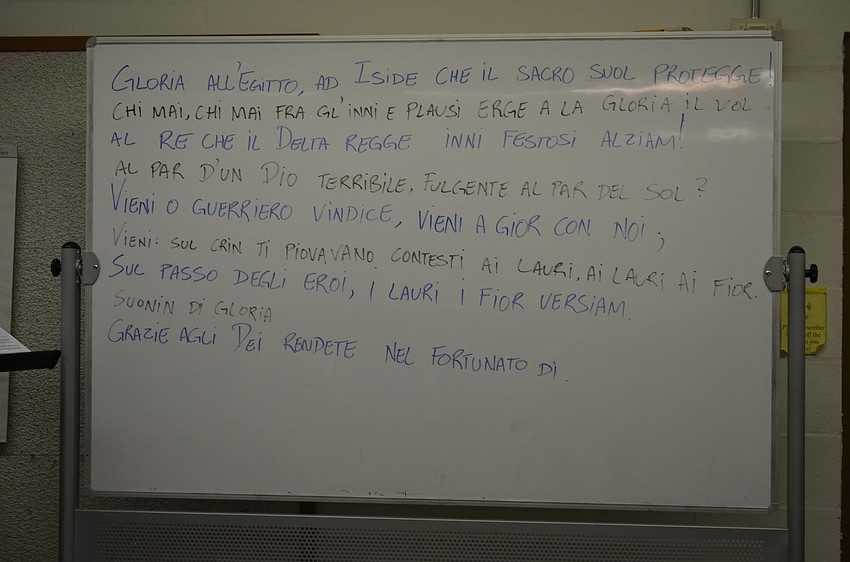 GLORIA ALL'EGITTO, AD ISIDE CHE IL SACRO SUOL PROTEGGE!
CHI MAI, CHI MAI FRA GL'INNI E PLAUSI ERGE A LA GLORIA IL VOL
AL RE CHE IL DELTA REGGE INNI FESTOSI ALZIAM!
AL PAR D'UN DIO TERRIBILE, FULGENTE AL PAR DEL SOL?
VIENI O GUERRIERO VINDICE, VIENI A GIOR CON NOI;
VIENI: SUL CRIN TI PIOVAVANO CONTESTI AI LAURI, AI LAURI AI FIOR.
SUL PASSO DEGLI EROI, I LAURI I FIOR VERSIAM.
SUONIN DI GLORIA
GRAZIE AGLI DEI RENDETE NEL FORTUNATO DÌ.